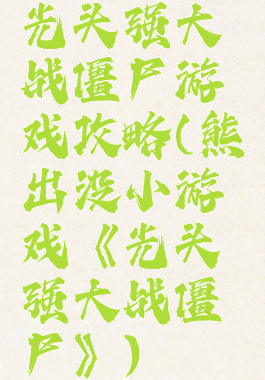 光头强大
战僵尸游
戏攻略(熊
出没小游
戏《光头
强大战僵
尸》)